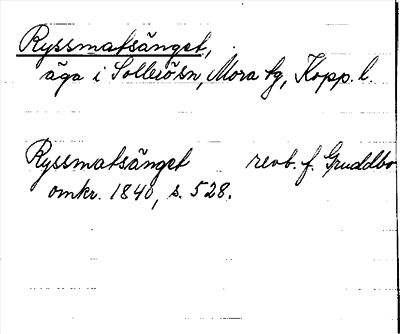 Ryssmatsänget,
äga i Sollerösn, Mora tg, Kopp. l.
Ryssmatsänget revb. f. Gruddbo
omkr. 1840, s. 528.